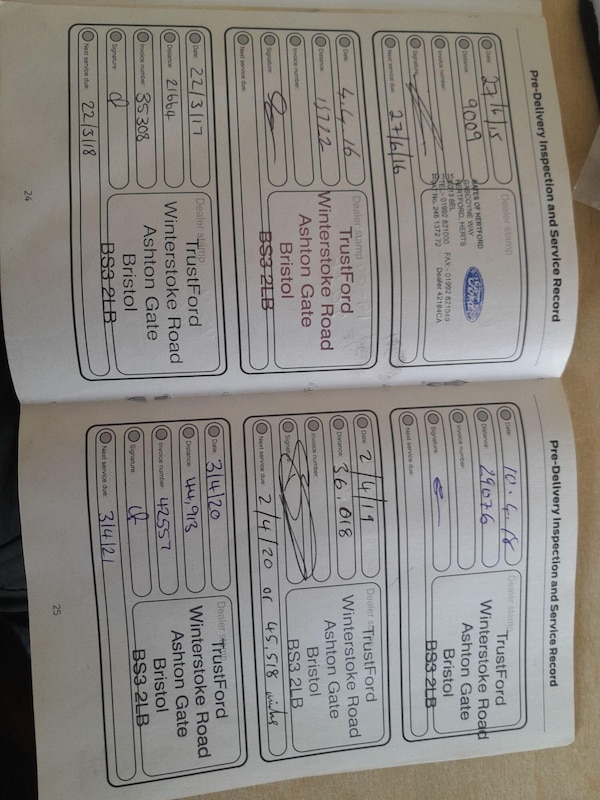 Pre-Delivery Inspection and Service Record
Date: 27/6/15
Distance: 9009
Invoice number:
Signature:
Next service due: 27/6/16
Dealer stamp
GATES OF HERTFORD
GASCOYNE WAY
HERTFORD, HERTS
SG13 8EL
TEL - 01992 821000 FAX - 01992 821049
No. 246 1372 72 Dealer 42184CA
Ford
Date: 4.4.16
Distance: 15722
Invoice number:
Signature:
Next service due:
Dealer stamp
TrustFord
Winterstoke Road
Ashton Gate
Bristol
BS3 2LB
Date: 22/3/17
Distance: 21664
Invoice number: 35308
Signature:
Next service due: 22/3/18
Dealer stamp
TrustFord
Winterstoke Road
Ashton Gate
Bristol
BS3 2LB
24
Pre-Delivery Inspection and Service Record
Date: 10.4.18
Distance: 29076
Invoice number:
Signature:
Next service due:
Dealer stamp
TrustFord
Winterstoke Road
Ashton Gate
Bristol
BS3 2LB
Date: 2/4/19
Distance: 36,018
Invoice number:
Signature:
Next service due: 2/4/20 or 45,518 miles
Dealer
TrustFord
Winterstoke Road
Ashton Gate
Bristol
BS3 2LB
Date: 3/4/20
Distance: 44,913
Invoice number: 42557
Signature:
Next service due: 3/4/21
Dealer stamp
TrustFord
Winterstoke Road
Ashton Gate
Bristol
BS3 2LB
25